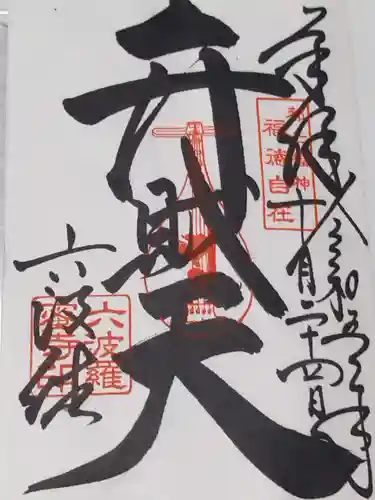 奉拝
令和五年
十月二十四日
都七福神
福徳自在
弁財天
六波羅
六波羅蜜寺印